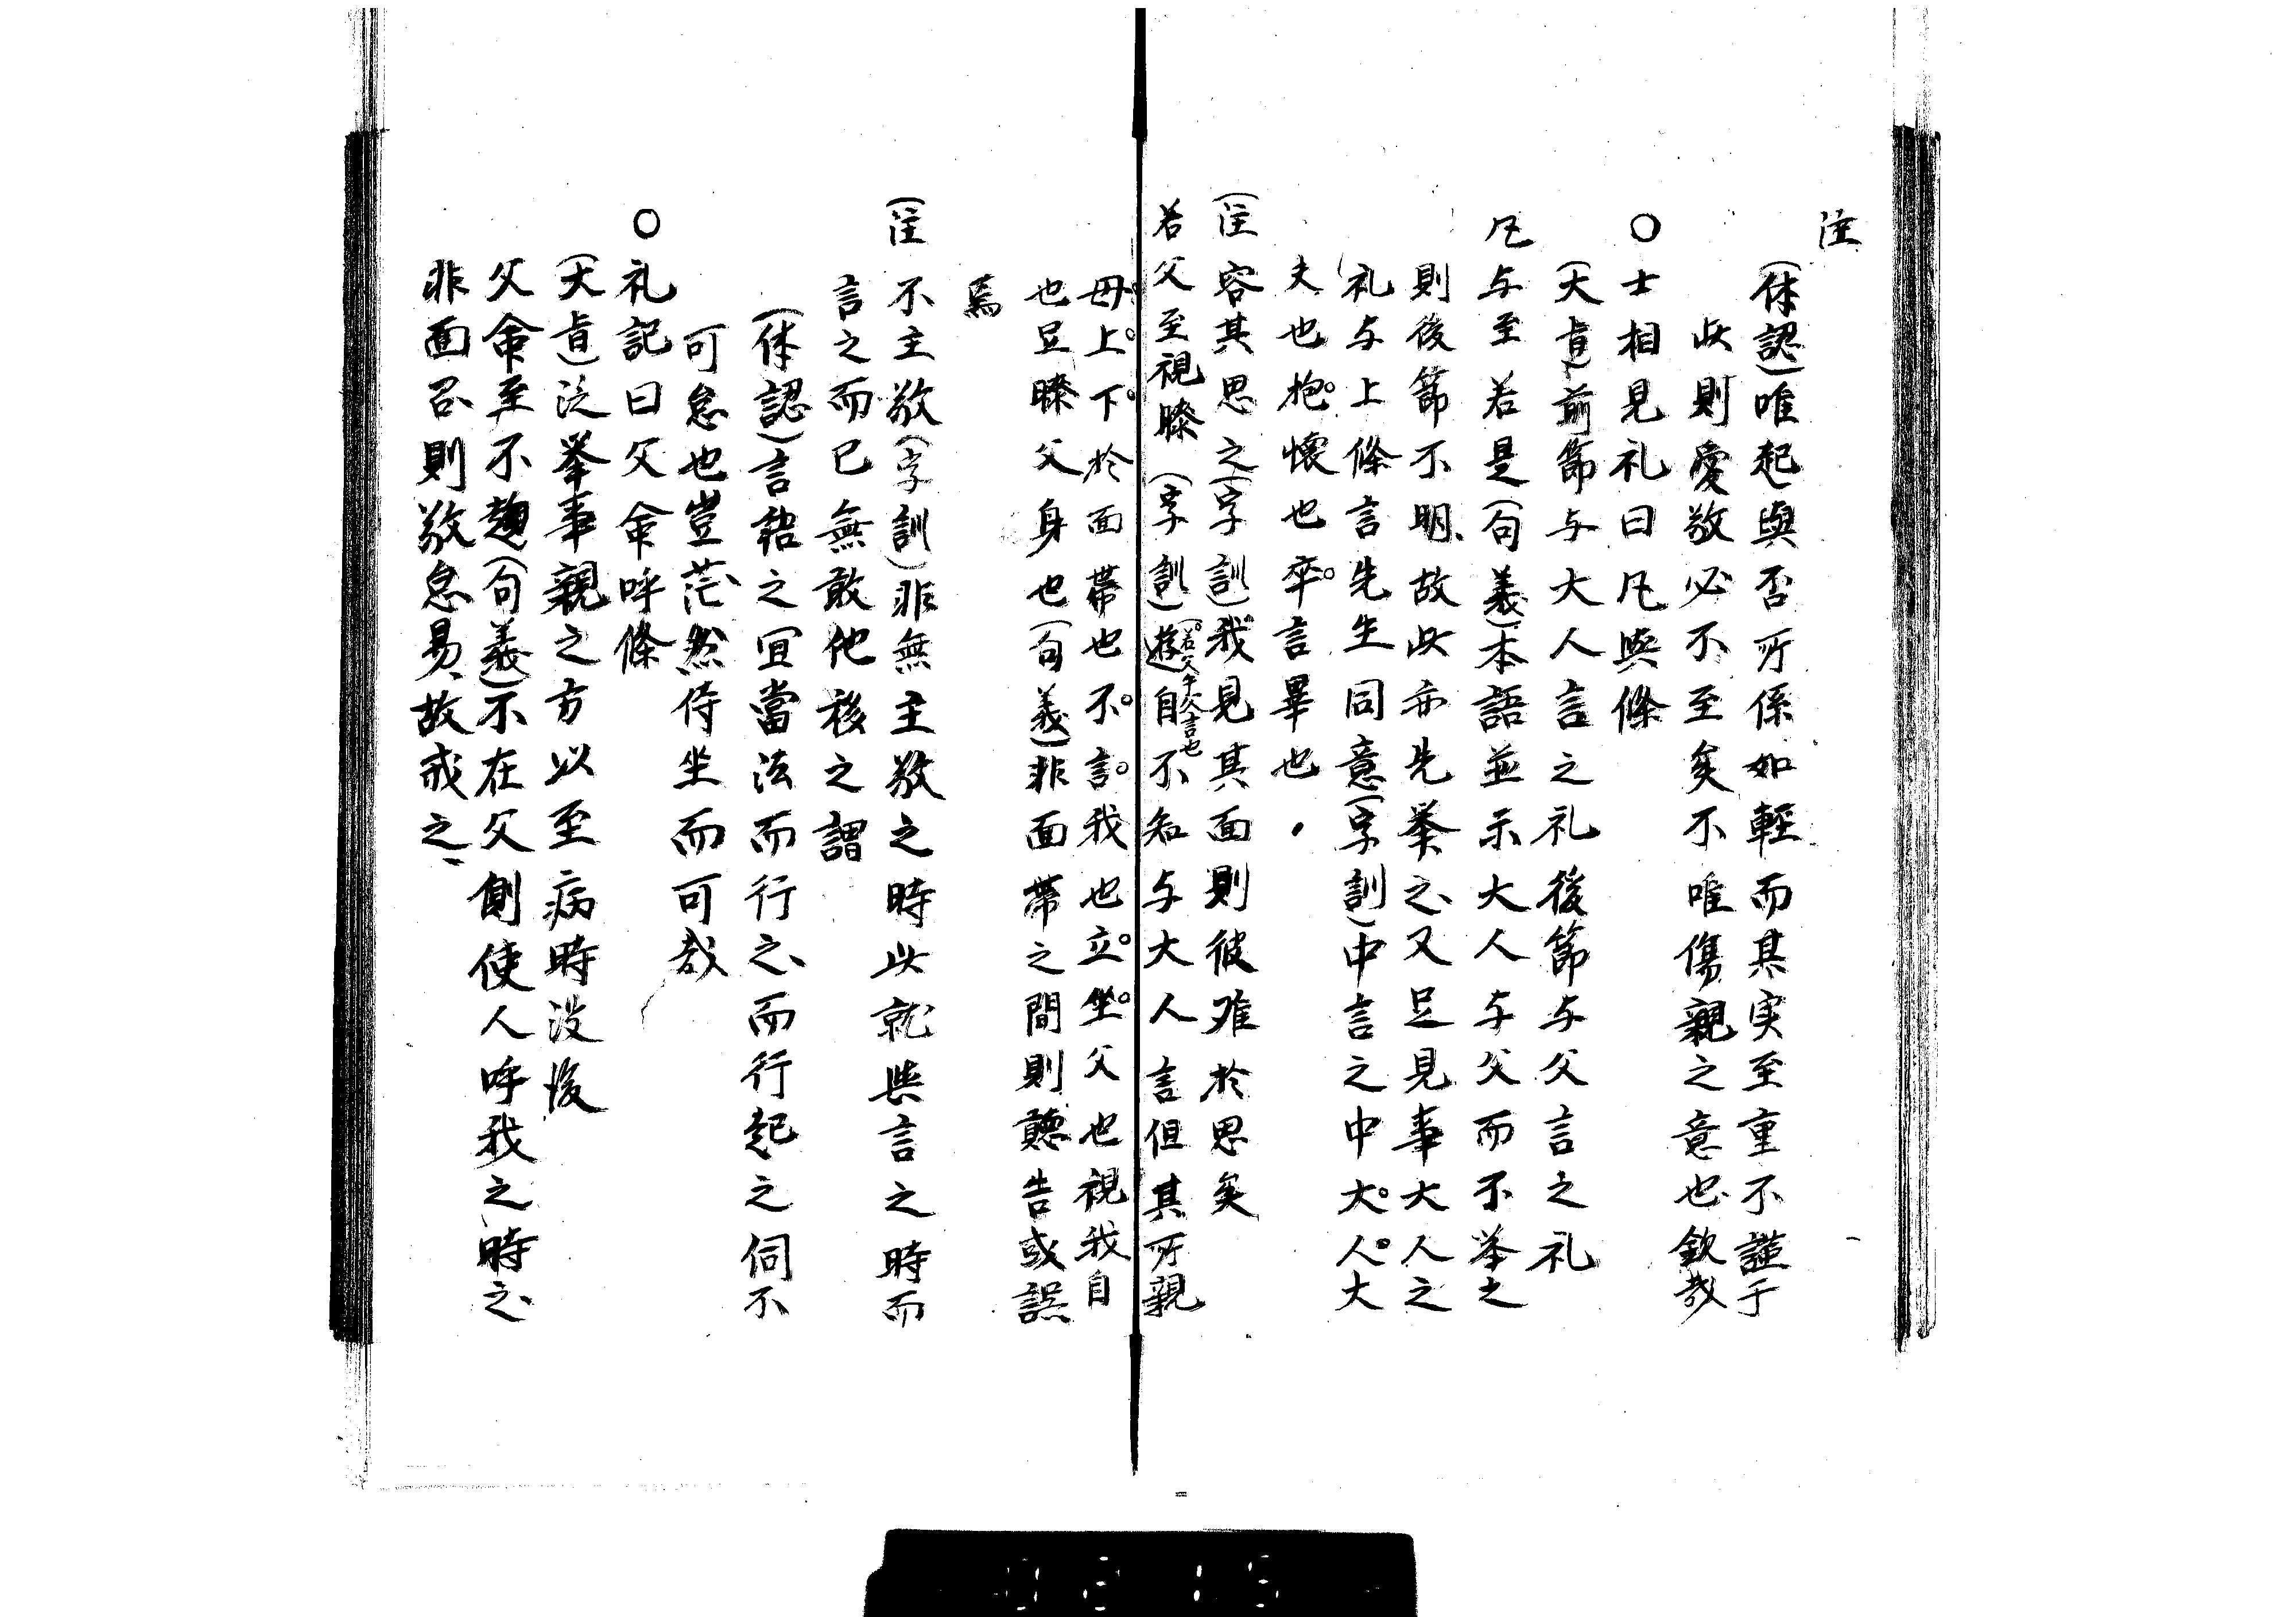 注
(体認)唯起與否所係如軽而其実至重不謹于
此則愛敬必不至矣不唯傷親之意也欽哉
○士相見礼曰凡與條
(大旨)前節与大人言之礼後節与父言之礼
凡与至若是(句義)本語並示大人与父而不挙之
則後節不明故此亦先挙之又足見事大人之
礼与上條言先生同意(字訓)中言之中大人大
夫也抱懐也卒言畢也
(注容其思之(字訓)我見其面則彼难於思矣
若父至視膝(字訓)(若父子父言也)遊自不知与大人言但其所親
毋上下於面帯也不言我也立坐父也視我自
也足膝父身也(句義)非面帯之間則聽告或誤
焉
(注不主敬(字訓)非無主敬之時此就與言之時而
言之而已無敢他移之謂
(体認)言語之宜當法而行之而行起之伺不
可怠也豈茫然侍坐而可哉
○礼記曰父命呼條
(大旨)泛挙事親之方以至病時没後
父命至不趨(句義)不在父側使人呼我之時之
非面召則敬怠易故戒之